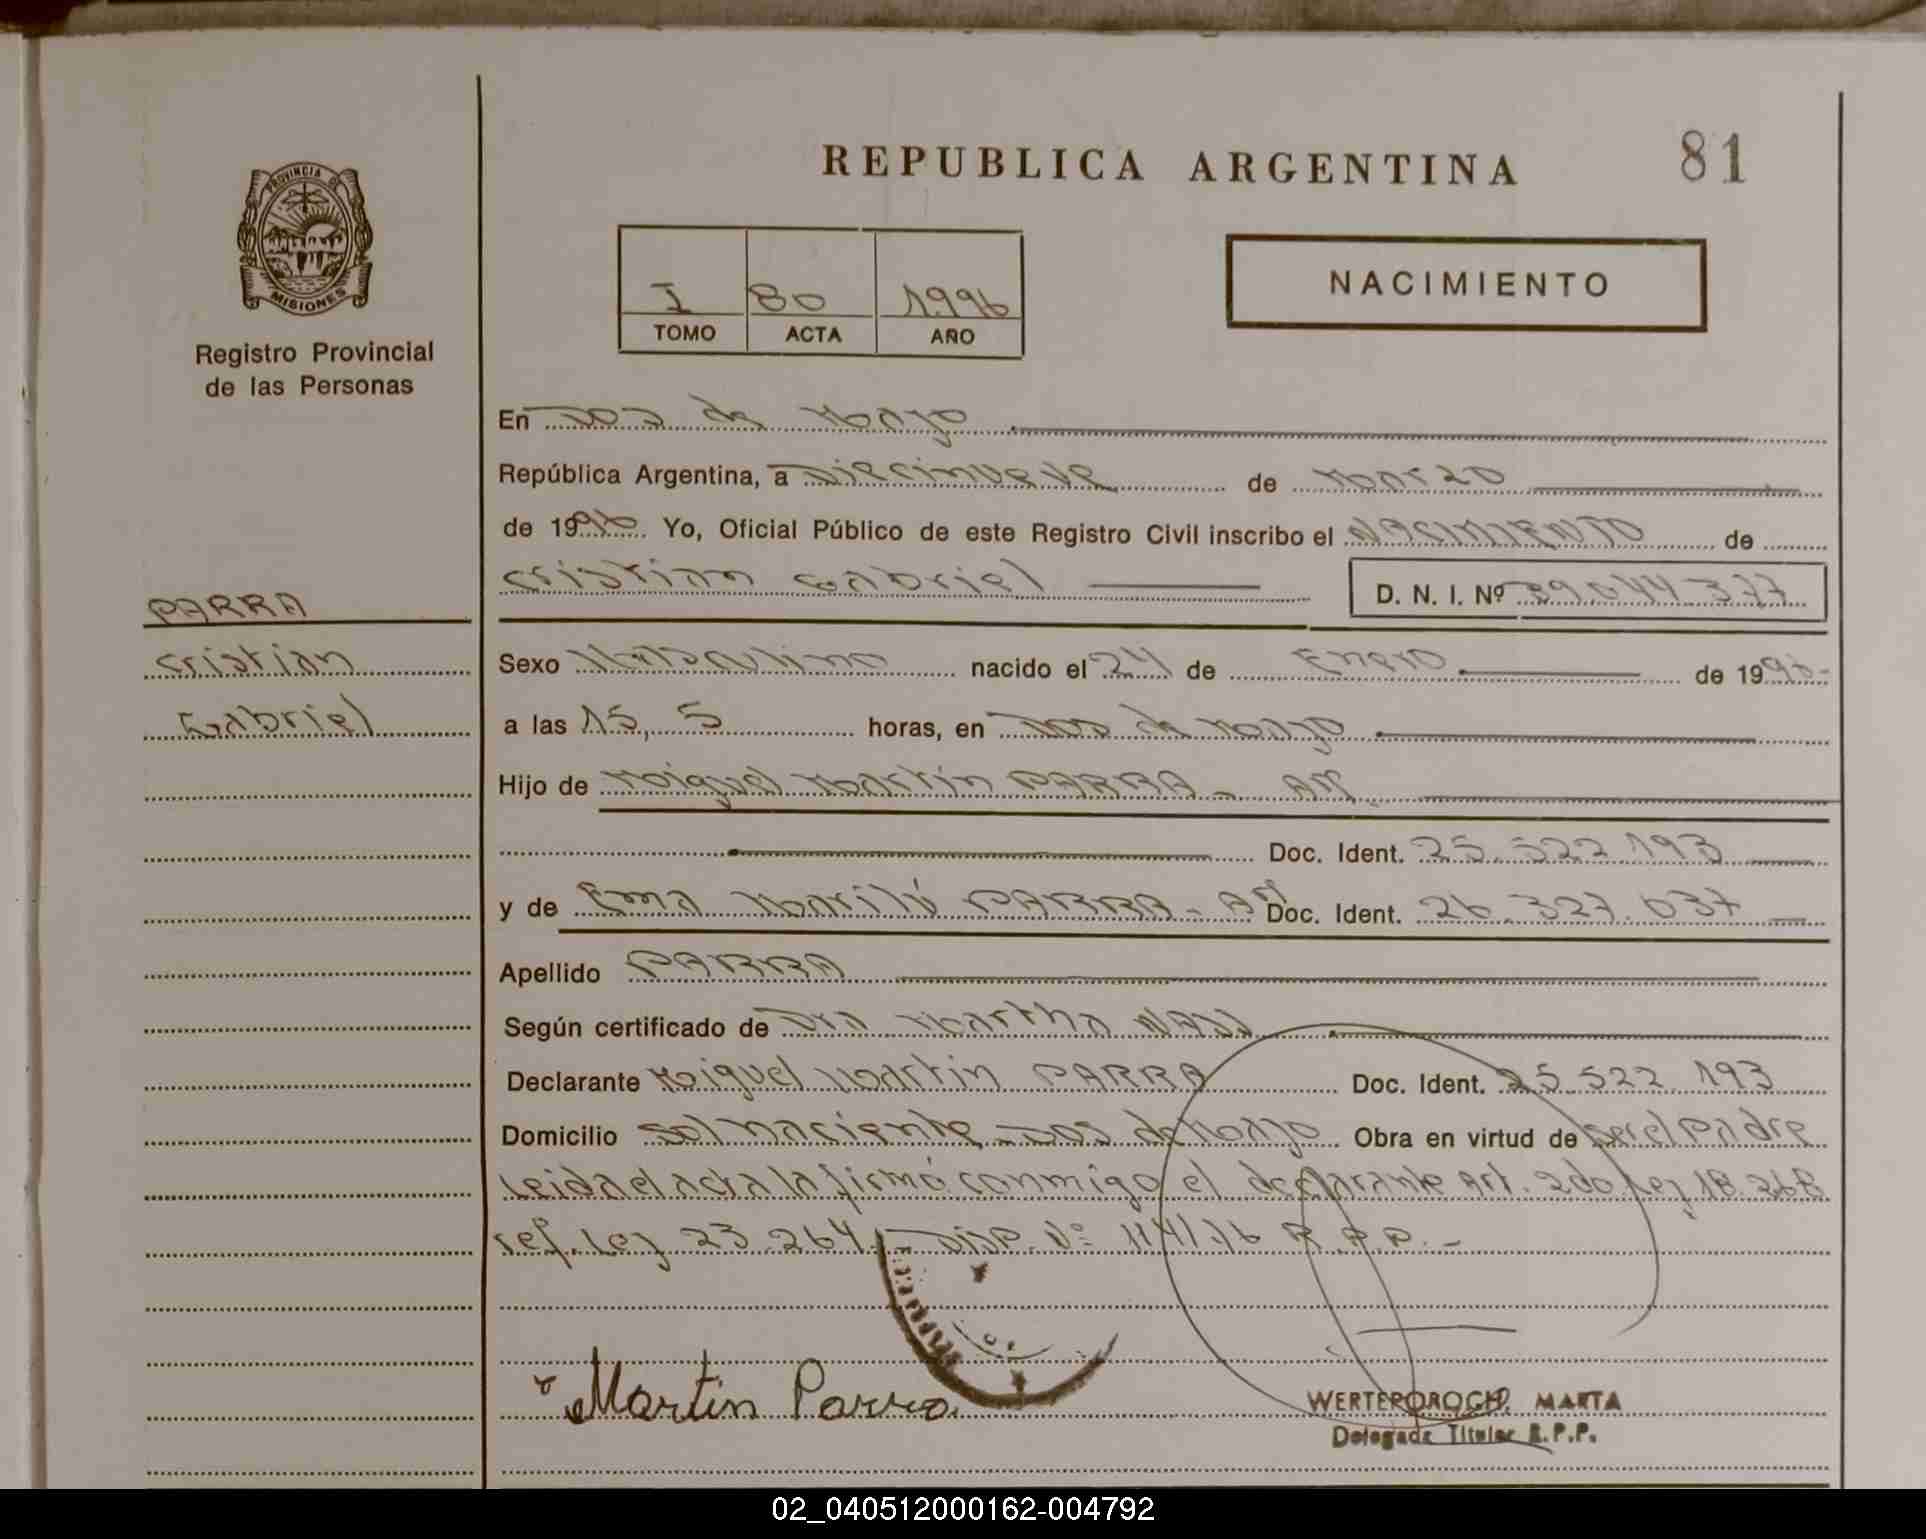 REPUBLICA ARGENTINA
81
PROVINCIA DE
MISIONES
Registro Provincial
de las Personas
I 80 1.996
TOMO ACTA AÑO
NACIMIENTO
En Dos de Mayo
República Argentina, a Diecinueve de Marzo
de 1996 Yo, Oficial Público de este Registro Civil inscribo el NACIMIENTO de
Cristian Gabriel D. N. I. Nº 39.044.377
PARRA
Cristian
Gabriel
Sexo Masculino nacido el 24 de Enero de 1996-
a las 15,5 horas, en Dos de Mayo
Hijo de Miguel Martin PARRA - Ar.
Doc. Ident. 25.522.193
y de Ema Marilú PARRA - Ar Doc. Ident. 26.327.037
Apellido PARRA
Según certificado de Dra Martha
Declarante Miguel Martin PARRA Doc. Ident. 25.522.193
Domicilio Sol naciente - Dos de Mayo Obra en virtud de ser el Padre
Leida el acta la firmó conmigo el declarante Art. 2do Ley 18.268
ref. Ley 23.264 - Disp. Nº R.P.P. -
Martin Parra
WERTEPOROCH, MARTA
Delegada Titular R.P.P.
02_040512000162-004792